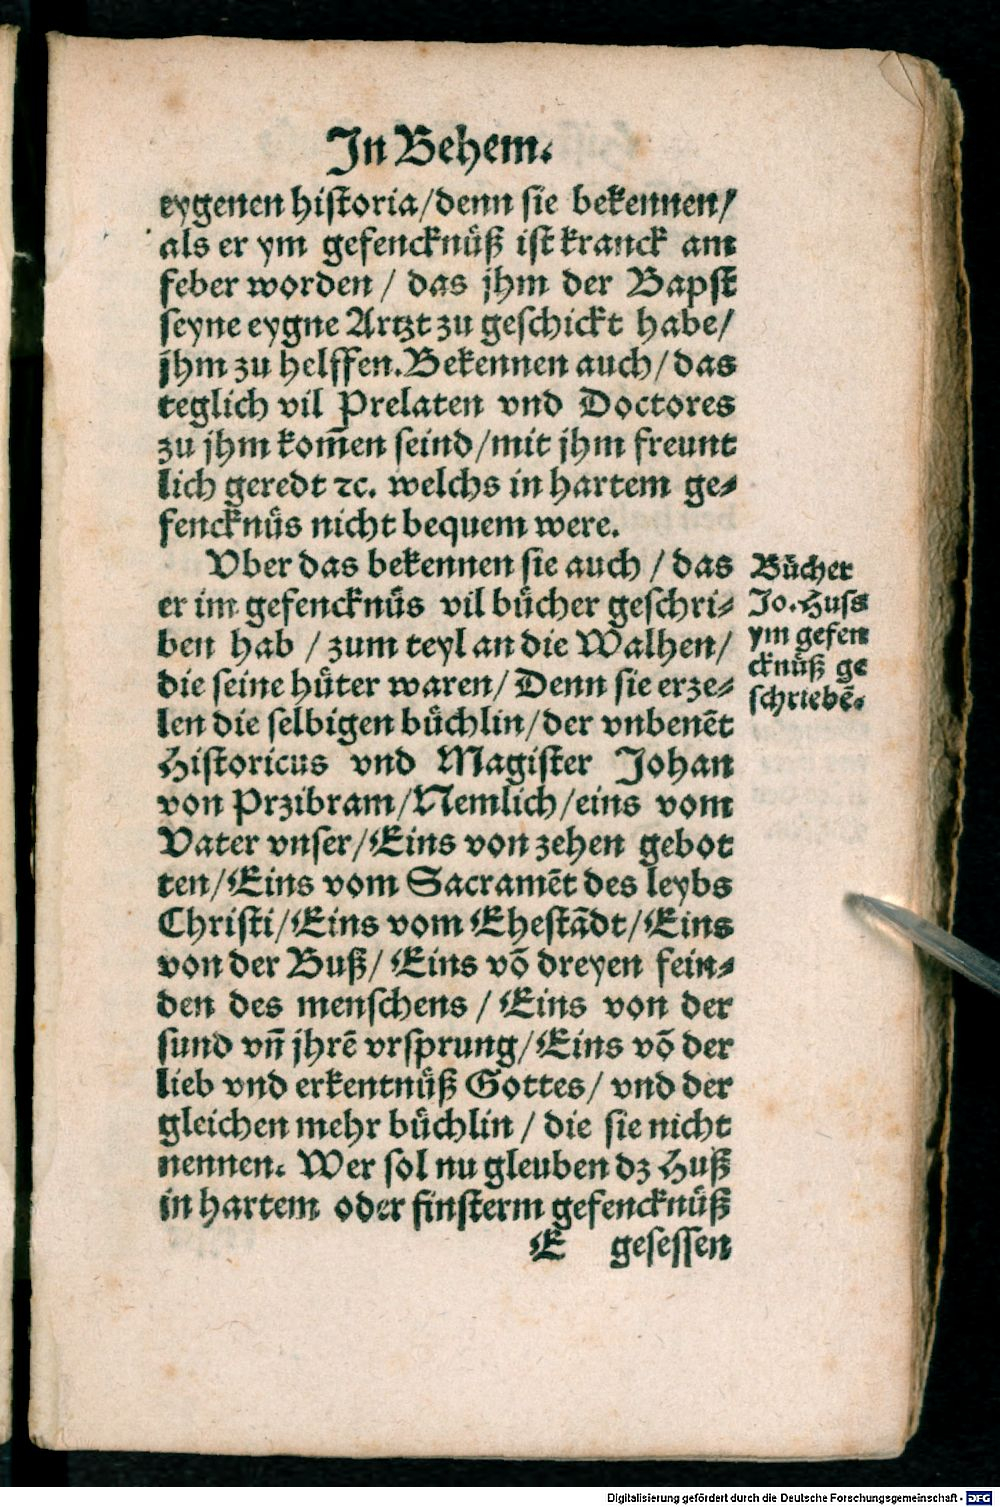 In Behem.
eygenen historia/denn sie bekennen/
als er ym gefencknüß ist kranck am
feber worden / das jhm der Bapst
seyne eygne Artzt zu geschickt habe/
jhm zu helffen. Bekennen auch/das
teglich vil Prelaten vnd Doctores
zu jhm kom̃en seind/mit jhm freunt
lich geredt ꝛc. welchs in hartem ge⸗
fencknüs nicht bequem were.
Vber das bekennen sie auch / das
er im gefencknüs vil bücher geschri⸗
ben hab / zum teyl an die Walhen/
die seine hüter waren/ Denn sie erze⸗
len die selbigen büchlin/der vnbenẽt
Historicus vnd Magister Johan
von Przibram/Nemlich/eins vom
Vater vnser/Eins von zehen gebot
ten/Eins vom Sacramẽt des leybs
Christi/Eins vom Ehestãdt/Eins
von der Buß/ Eins võ dreyen fein⸗
den des menschens / Eins von der
sund vñ jhrẽ vrsprung/Eins võ der
lieb vnd erkentnüß Gottes/ vnd der
gleichen mehr büchlin / die sie nicht
nennen. Wer sol nu gleuben dz Huß
in hartem oder finsterm gefencknüß
E gesessen
Bücher
Jo. Huss
ym gefen
cknüß ge
schriebẽ.
Digitalisierung gefördert durch die Deutsche Forschungsgemeinschaft - DFG